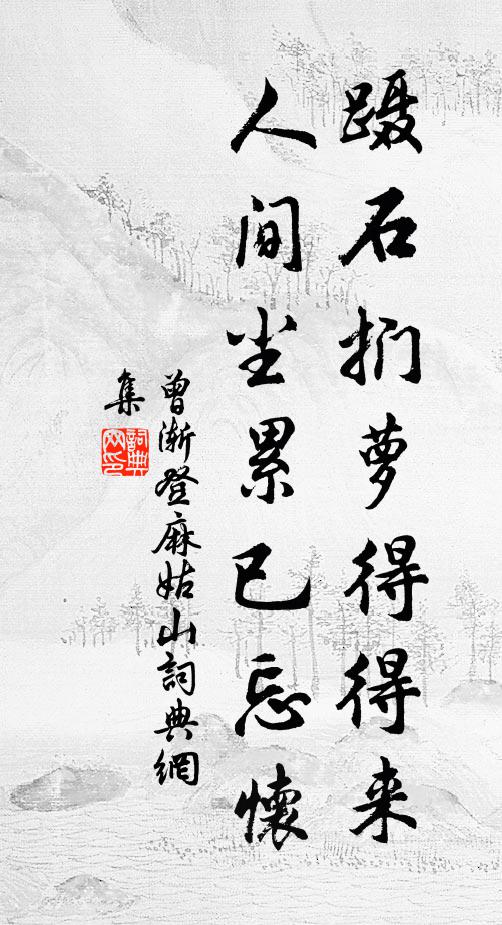 蹑石扪萝得得来
人间尘累已忘懷
曾渐登麻姑山詞典網
集
詞典
网印